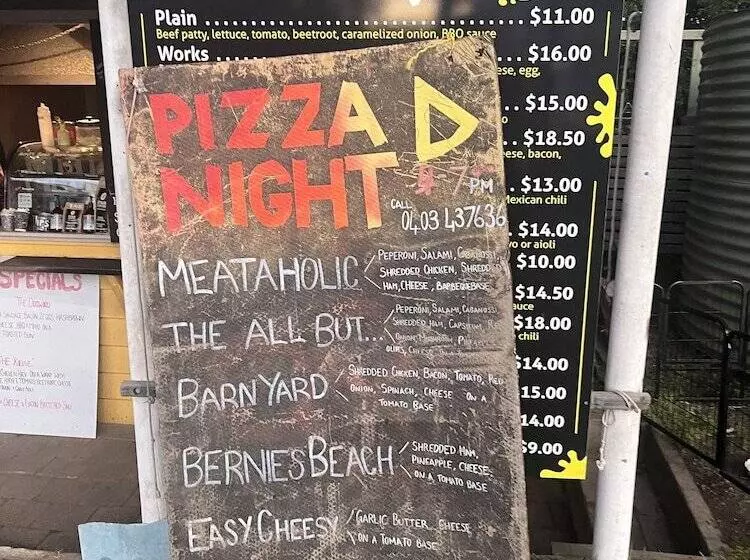 Plain ........ $11.00
Beef patty, lettuce, tomato, beetroot, caramelized onion, BBQ sauce
Works ........ $16.00
ese, egg,
$15.00
$18.50
ese, bacon,
$13.00
exican chili
$14.00
vo or aioli
$10.00
$14.50
auce
$18.00
chili
$14.00
15.00
14.00
$9.00
PIZZA
NIGHT
PM
CALL
0403 437636
MEATAHOLIC
PEPERONI, SALAMI,
SHREDDED CHICKEN, SHREDDED
HAM, CHEESE, BARBEQUE BASE
THE ALL BUT...
PEPERONI, SALAMI, CABANOSSI
SHREDDED HAM, CAPSICUM,
BARNYARD
SHREDDED CHICKEN, BACON, TOMATO, RED
ONION, SPINACH, CHEESE ON A
TOMATO BASE
BERNIES BEACH
SHREDDED HAM,
PINEAPPLE, CHEESE,
ON A TOMATO BASE
EASY CHEESY
GARLIC BUTTER CHEESE
ON A TOMATO BASE
SPECIALS